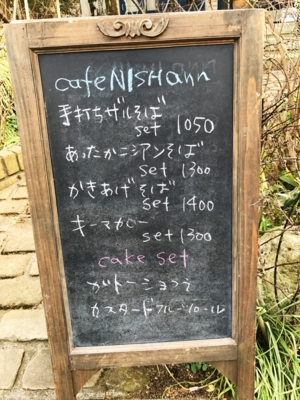 cafeNISHann
手打ちザルそば
set 1050
あったかニシアンそば
set 1300
かきあげそば
set 1400
キーマカレー
set 1300
cake set
ガトーショコラ
カスタードフルーツロール